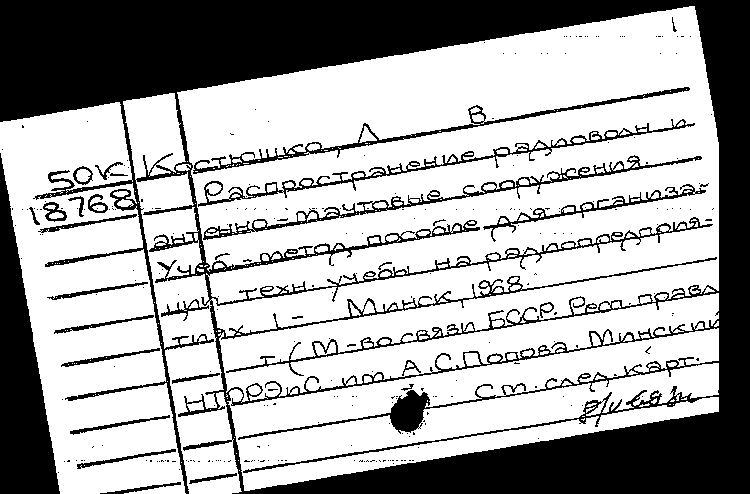 1
50К Костюшко, Л В
18768 Распространение радиоволн и
антенно-мачтовые сооружения.
Учеб.-метод. пособие для организа-
ции техн. учебы на радиопредприя-
тиях. 1- Минск, 1968.
т. (М-во связи БССР. Респ. правл
НТОРЭиС им. А.С.Попова. Минский
См. след. карт.